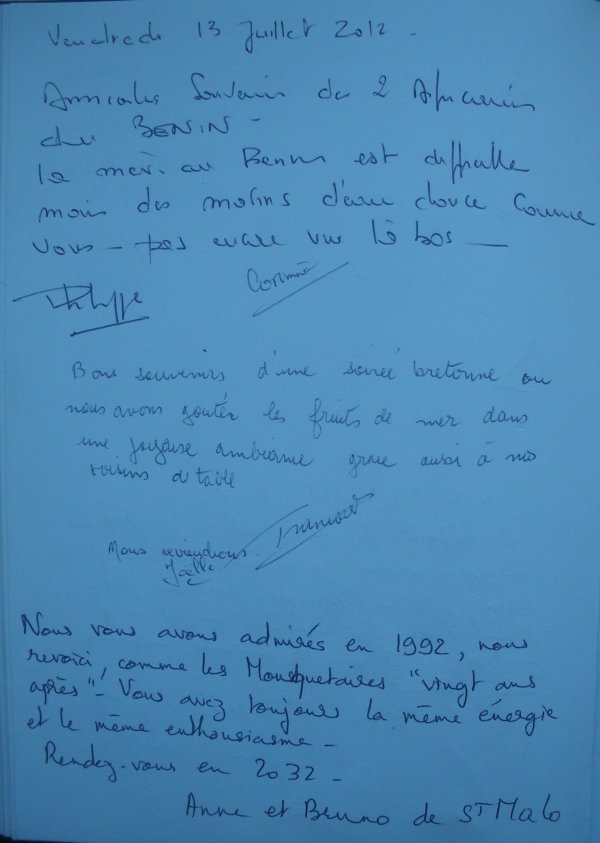 Vendredi 13 Juillet 2012.
Amicales Souvenirs de 2 Africains
du BENIN -
la mer au Benin est difficile
mais des marins d'eau douce comme
vous - pas encore vu là bas -
Philippe
Corinne
Bons souvenirs d'une soirée bretonne ou
nous avons goutés les fruits de mer dans
une joyeuse ambiance grace aussi à nos
voisins de table
Nous reviendrons.
Joëlle
Nous vous avons admirés en 1992, nous
revoici, comme les Mousquetaires "vingt ans
après" - Vous avez toujours la même énergie
et le même enthousiasme -
Rendez-vous en 2032 -
Anne et Bruno de ST Malo